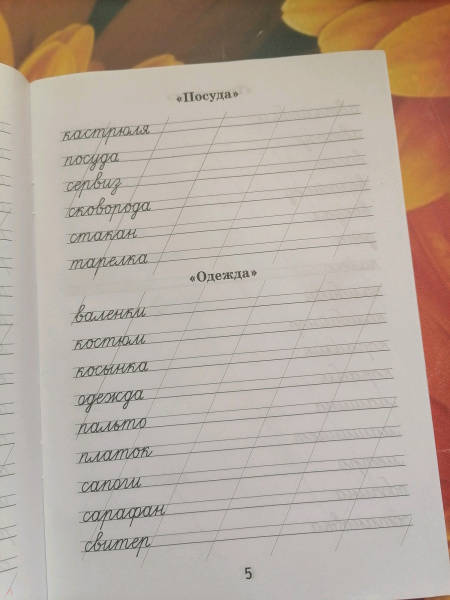 «Посуда»
кастрюля
посуда
сервиз
сковорода
стакан
тарелка
«Одежда»
валенки
костюм
косынка
одежда
пальто
платок
сапоги
сарафан
свитер
5